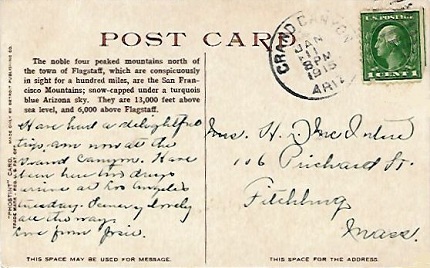 POST CARD
The noble four peaked mountains north of
the town of Flagstaff, which are conspicuously
in sight for a hundred miles, are the San Fran-
cisco Mountains; snow-capped under a turquois
blue Arizona sky. They are 13,000 feet above
sea level, and 6,000 above Flagstaff.
Have had a delightful
trip, am now at the
Grand Canyon. Have
been here two days
arrive at Los Angeles
Tuesday. Scenery lovely
all the way.
Love from Josie.
THIS SPACE MAY BE USED FOR MESSAGE.
"PHOSTINT" CARD. MADE ONLY BY DETROIT PUBLISHING CO.
GRAND CANYON
JAN
11
8PM
1915
ARIZ
U.S. POSTAGE
1 CENT 1
Mrs. H. L. McIntire
106 Prichard St.
Fitchburg
Mass.
THIS SPACE FOR THE ADDRESS.